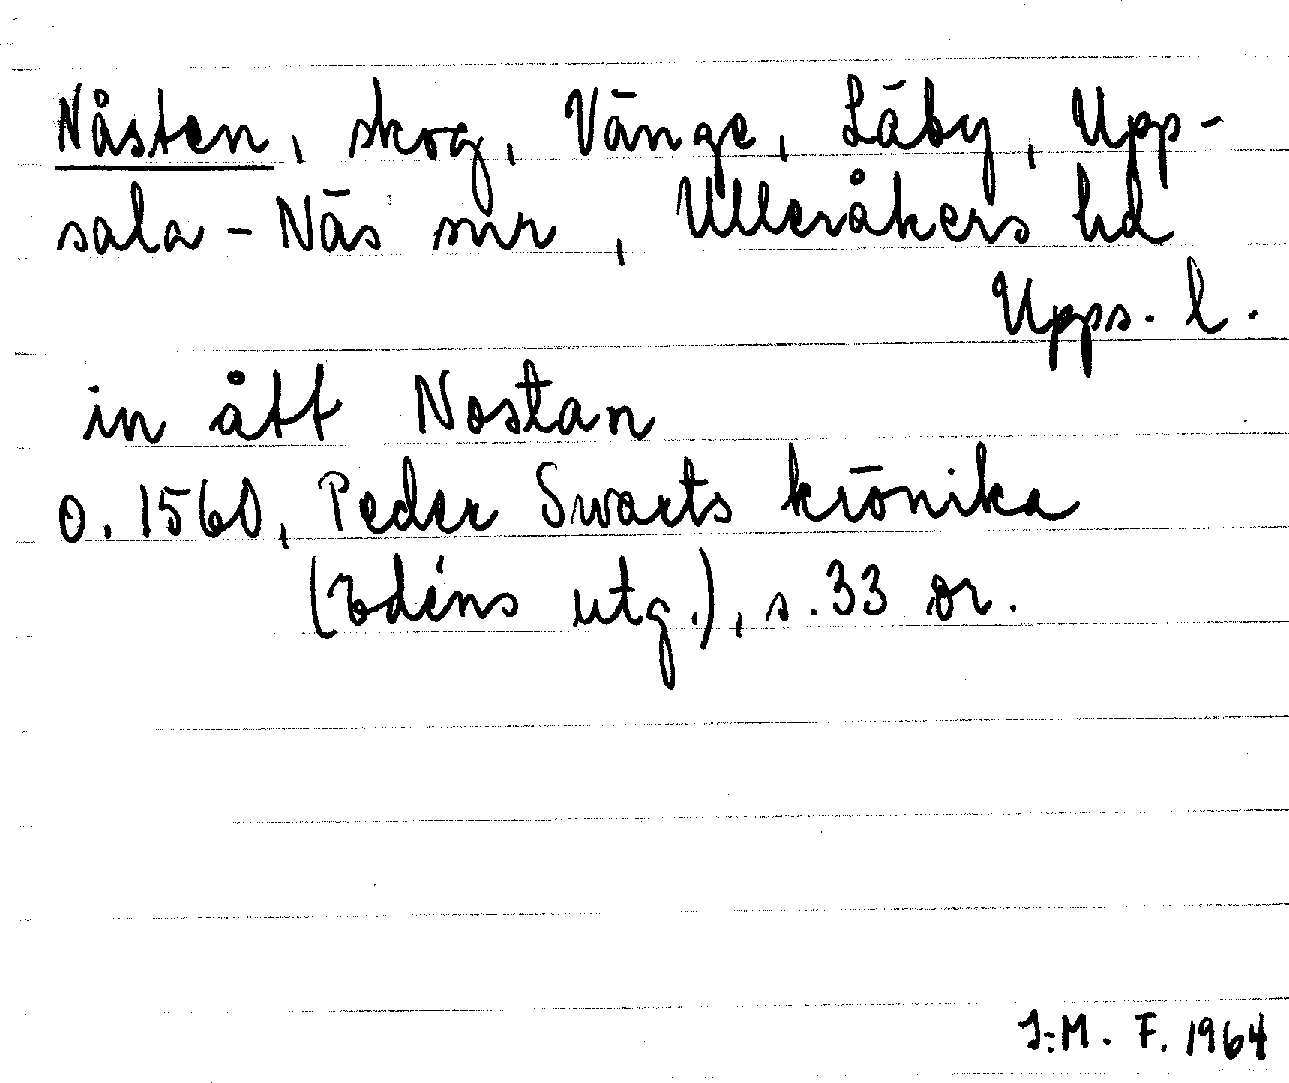 Nåsten, skog, Vänge, Läby, Upp-
sala-Näs snr, Ulleråkers hd
Upps. l.
in ått Nostan
o. 1560, Peder Swarts krönika
(Edéns utg.), s. 33 or.
I:M. F. 1964